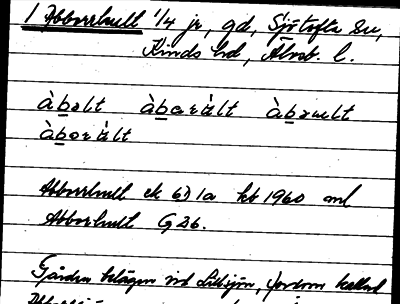 1 Abborrhult 1/4 jr, gd, Sjötofta sn,
Kinds hd, Älvsb. l.
àb̲ɔlt àb̲ɔrɑ̀lt àb̲ɔrult
àb̲ɔrɑ̀lt
Abborrhult ek 6D 1a kb 1960 ml
Abborhult G 26.
Gården belägen vid Lillsjön, fordom kallad